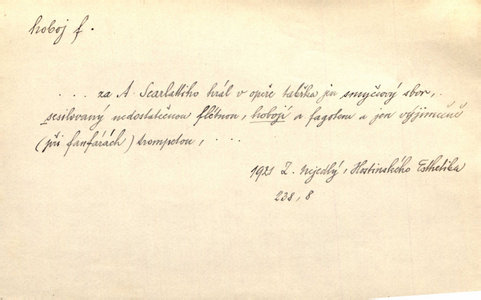 hoboj f.
. . . . za A. Scarlattiho hrál v opeře takřka jen smyčcový sbor,
sesilovaný nedostatečnou flétnou, hobojí a fagotem a jen výjimečně
(při fanfárách) trompetou, . . . .
1921 Z. Nejedlý, Hostinského Esthetika
238, 8